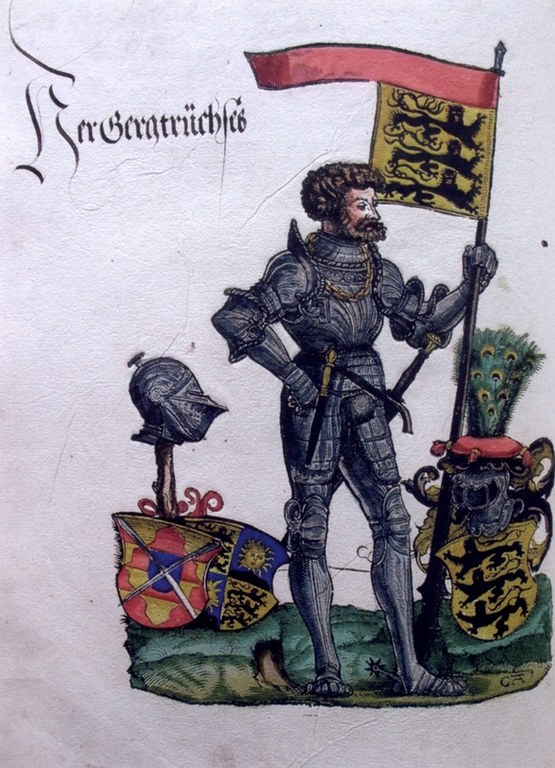 Her Gerg trüchses
CA